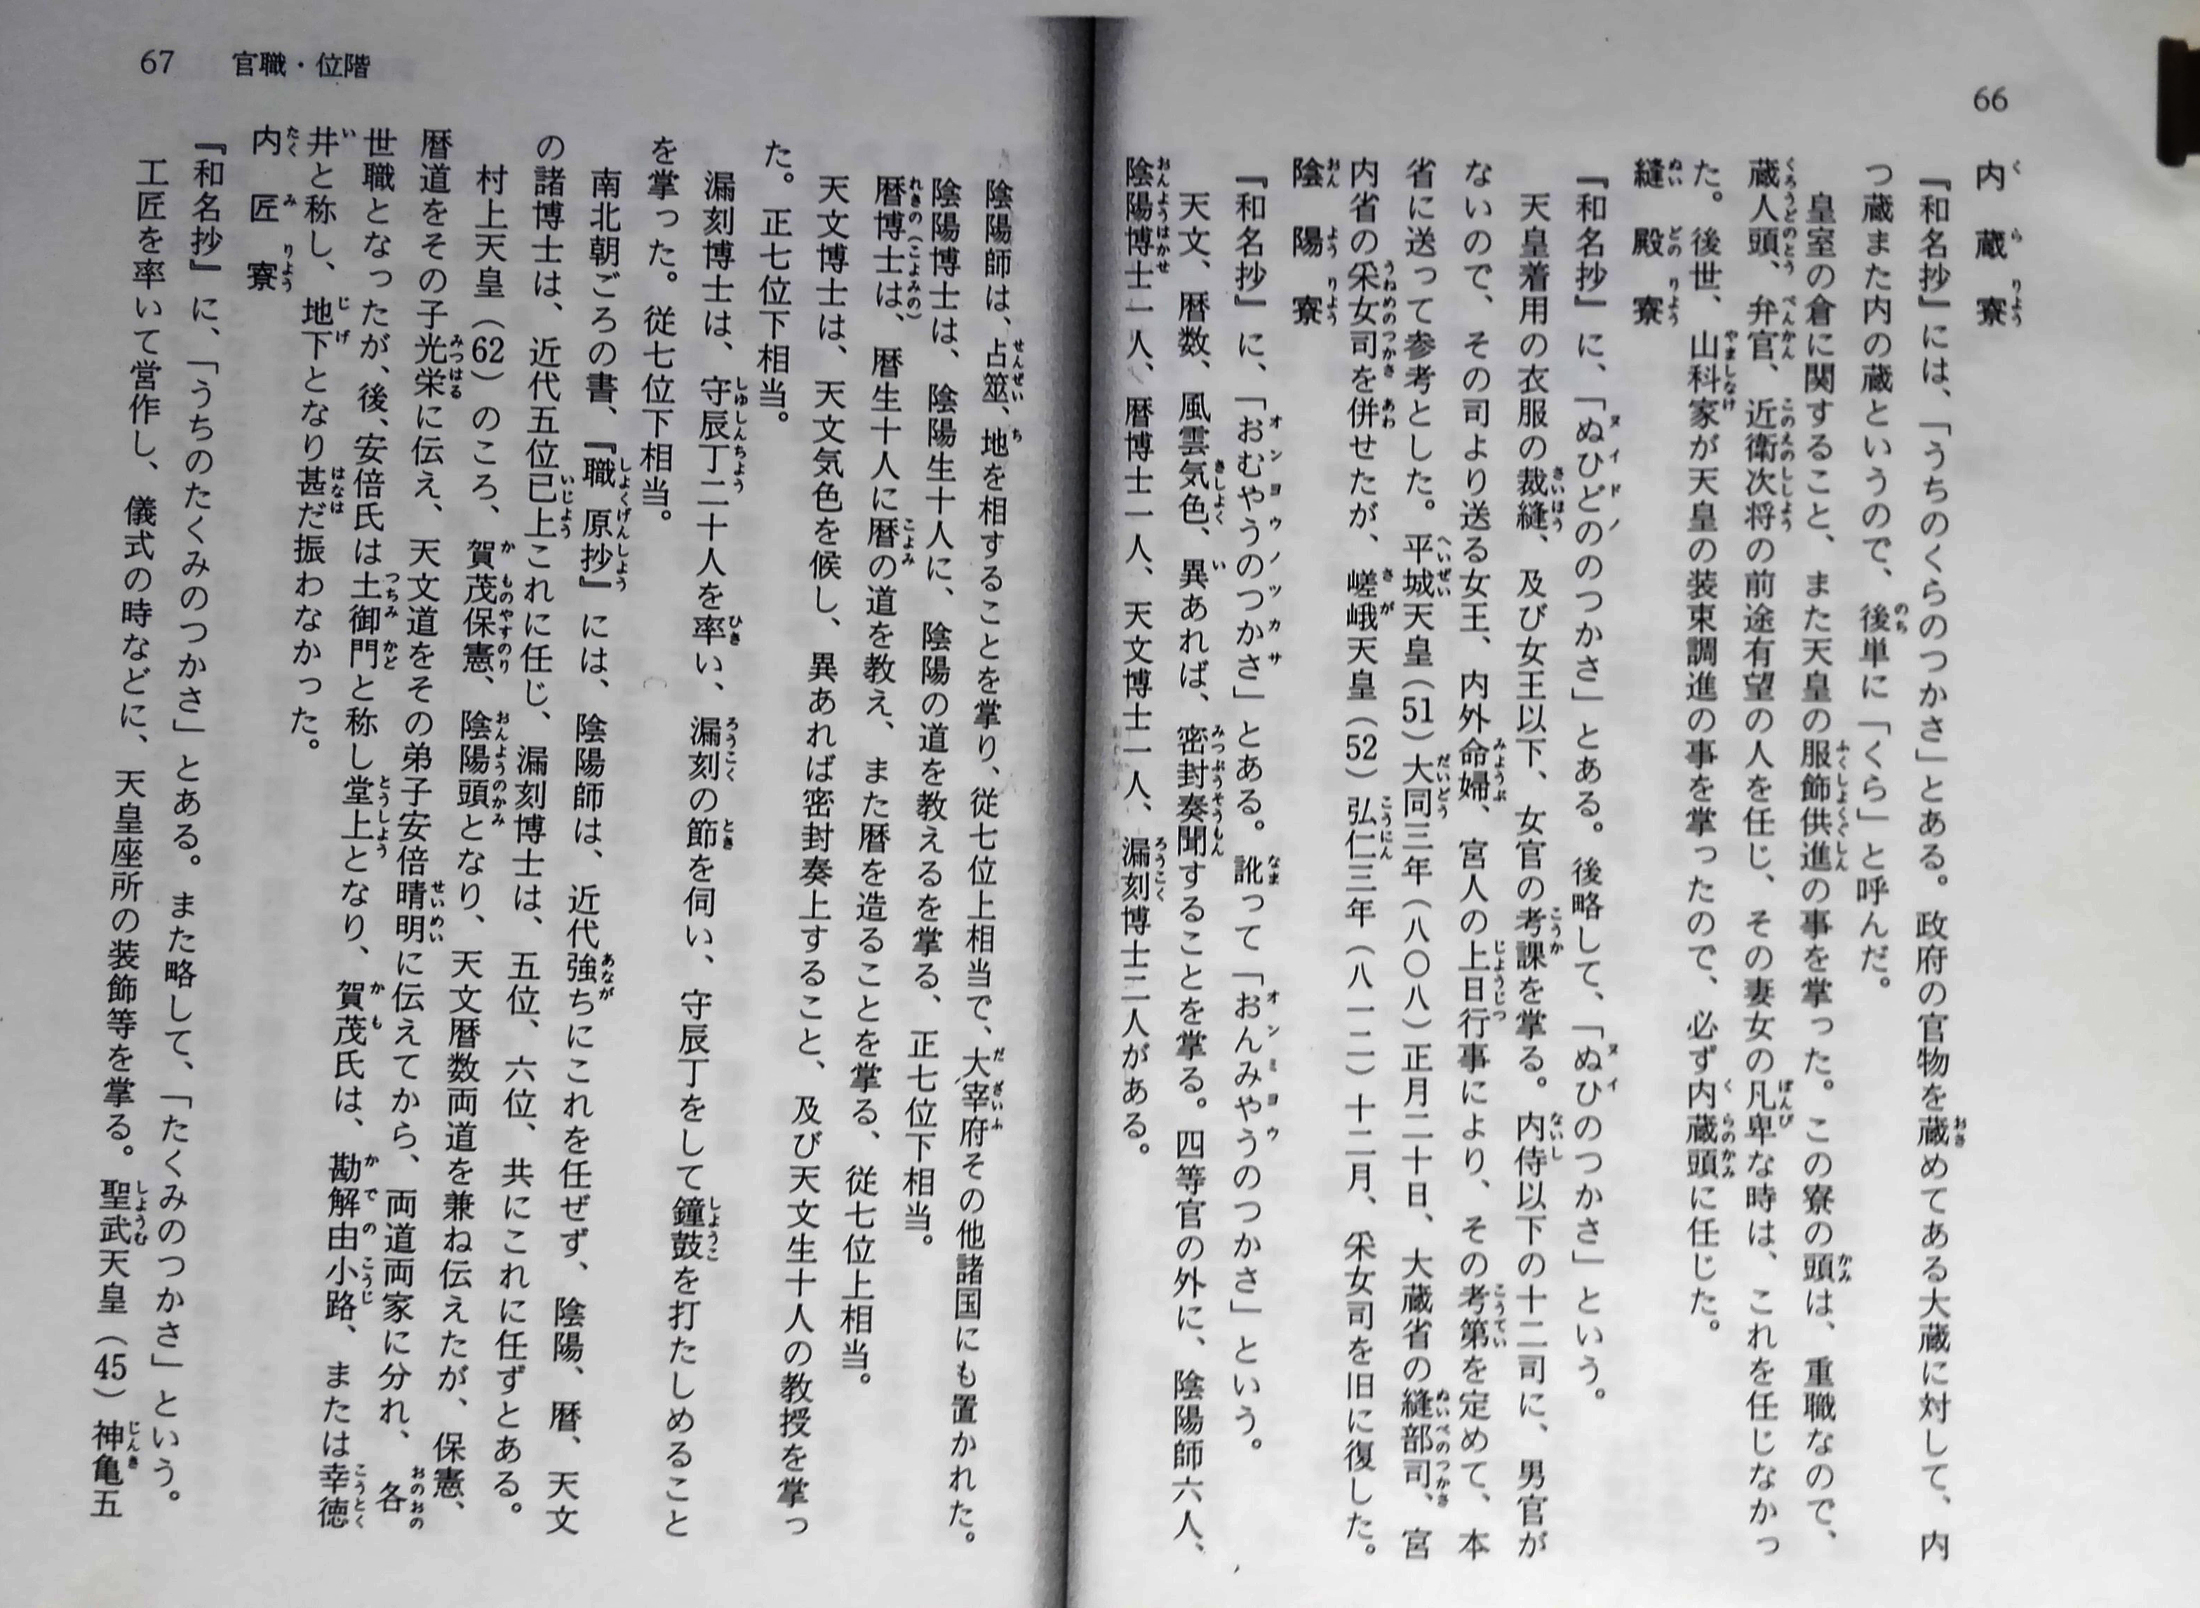 66
内蔵寮
『和名抄』には、「うちのくらのつかさ」とある。政府の官物を蔵めてある大蔵に対して、内
つ蔵また内の蔵というので、後単に「くら」と呼んだ。
皇室の倉に関すること、また天皇の服飾供進の事を掌った。この寮の頭は、重職なので、
蔵人頭、弁官、近衛次将の前途有望の人を任じ、その妻女の凡卑な時は、これを任じなかっ
た。後世、山科家が天皇の装束調進の事を掌ったので、必ず内蔵頭に任じた。
縫殿寮
『和名抄』に、「ぬひどののつかさ」とある。後略して、「ぬひのつかさ」という。
天皇着用の衣服の裁縫、及び女王以下、女官の考課を掌る。内侍以下の十二司に、男官が
ないので、その司より送る女王、内外命婦、宮人の上日行事により、その考第を定めて、本
省に送って参考とした。平城天皇（51）大同三年（八〇八）正月二十日、大蔵省の縫部司、宮
内省の采女司を併せたが、嵯峨天皇（52）弘仁三年（八一二）十二月、采女司を旧に復した。
陰陽寮
『和名抄』に、「おむやうのつかさ」とある。訛って「おんみやうのつかさ」という。
天文、暦数、風雲気色、異あれば、密封奏聞することを掌る。四等官の外に、陰陽師六人、
陰陽博士一人、暦博士一人、天文博士一人、漏刻博士二人がある。
67 官職・位階
陰陽師は、占筮、地を相することを掌り、従七位上相当で、大宰府その他諸国にも置かれた。
陰陽博士は、陰陽生十人に、陰陽の道を教えるを掌る、正七位下相当。
暦博士は、暦生十人に暦の道を教え、また暦を造ることを掌る、従七位上相当。
天文博士は、天文気色を候し、異あれば密封奏上すること、及び天文生十人の教授を掌っ
た。正七位下相当。
漏刻博士は、守辰丁二十人を率い、漏刻の節を伺い、守辰丁をして鐘鼓を打たしめること
を掌った。従七位下相当。
南北朝ごろの書、『職原抄』には、陰陽師は、近代強ちにこれを任ぜず、陰陽、暦、天文
の諸博士は、近代五位已上これに任じ、漏刻博士は、五位、六位、共にこれに任ずとある。
村上天皇（62）のころ、賀茂保憲、陰陽頭となり、天文暦数両道を兼ね伝えたが、保憲、
暦道をその子光栄に伝え、天文道をその弟子安倍晴明に伝えてから、両道両家に分れ、各
世職となったが、後、安倍氏は土御門と称し堂上となり、賀茂氏は、勘解由小路、または幸徳
井と称し、地下となり甚だ振わなかった。
内匠寮
『和名抄』に、「うちのたくみのつかさ」とある。また略して、「たくみのつかさ」という。
工匠を率いて営作し、儀式の時などに、天皇座所の装飾等を掌る。聖武天皇（45）神亀五